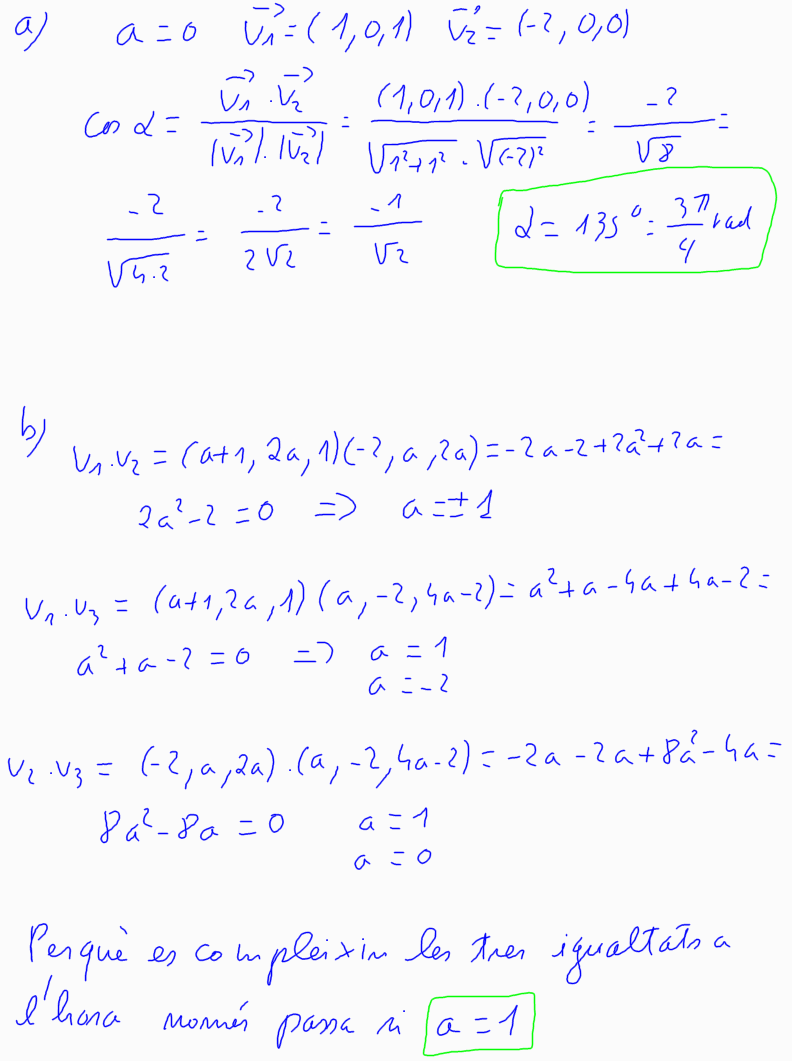 a) a = 0 v₁⃗ = (1, 0, 1) v₂⃗ = (-2, 0, 0)
cos α = (v₁⃗ · v₂⃗)/(|v₁⃗| · |v₂⃗|) = ((1, 0, 1) · (-2, 0, 0))/(√(1² + 1²) · √((-2)²)) = -2/√8 =
-2/√(4·2) = -2/(2√2) = -1/√2 α = 135° = 3π/4 rad
b)
v₁·v₂ = (a+1, 2a, 1)(-2, a, 2a) = -2a - 2 + 2a² + 2a =
2a² - 2 = 0 => a = ±1
v₁·v₃ = (a+1, 2a, 1)(a, -2, 4a-2) = a² + a - 4a + 4a - 2 =
a² + a - 2 = 0 => a = 1
a = -2
v₂·v₃ = (-2, a, 2a)·(a, -2, 4a-2) = -2a - 2a + 8a² - 4a =
8a² - 8a = 0 a = 1
a = 0
Perquè es compleixin les tres igualtats a
l'hora només passa si a = 1